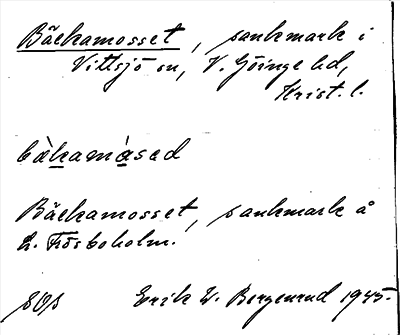 Bäckamosset, sankmark i
Vittsjö sn, V. Göinge hd,
Krist. l.
bàkamásad
Bäckamosset, sankmark å
L. Frösboholm.
SOs Erik W. Bergenrud 1945.